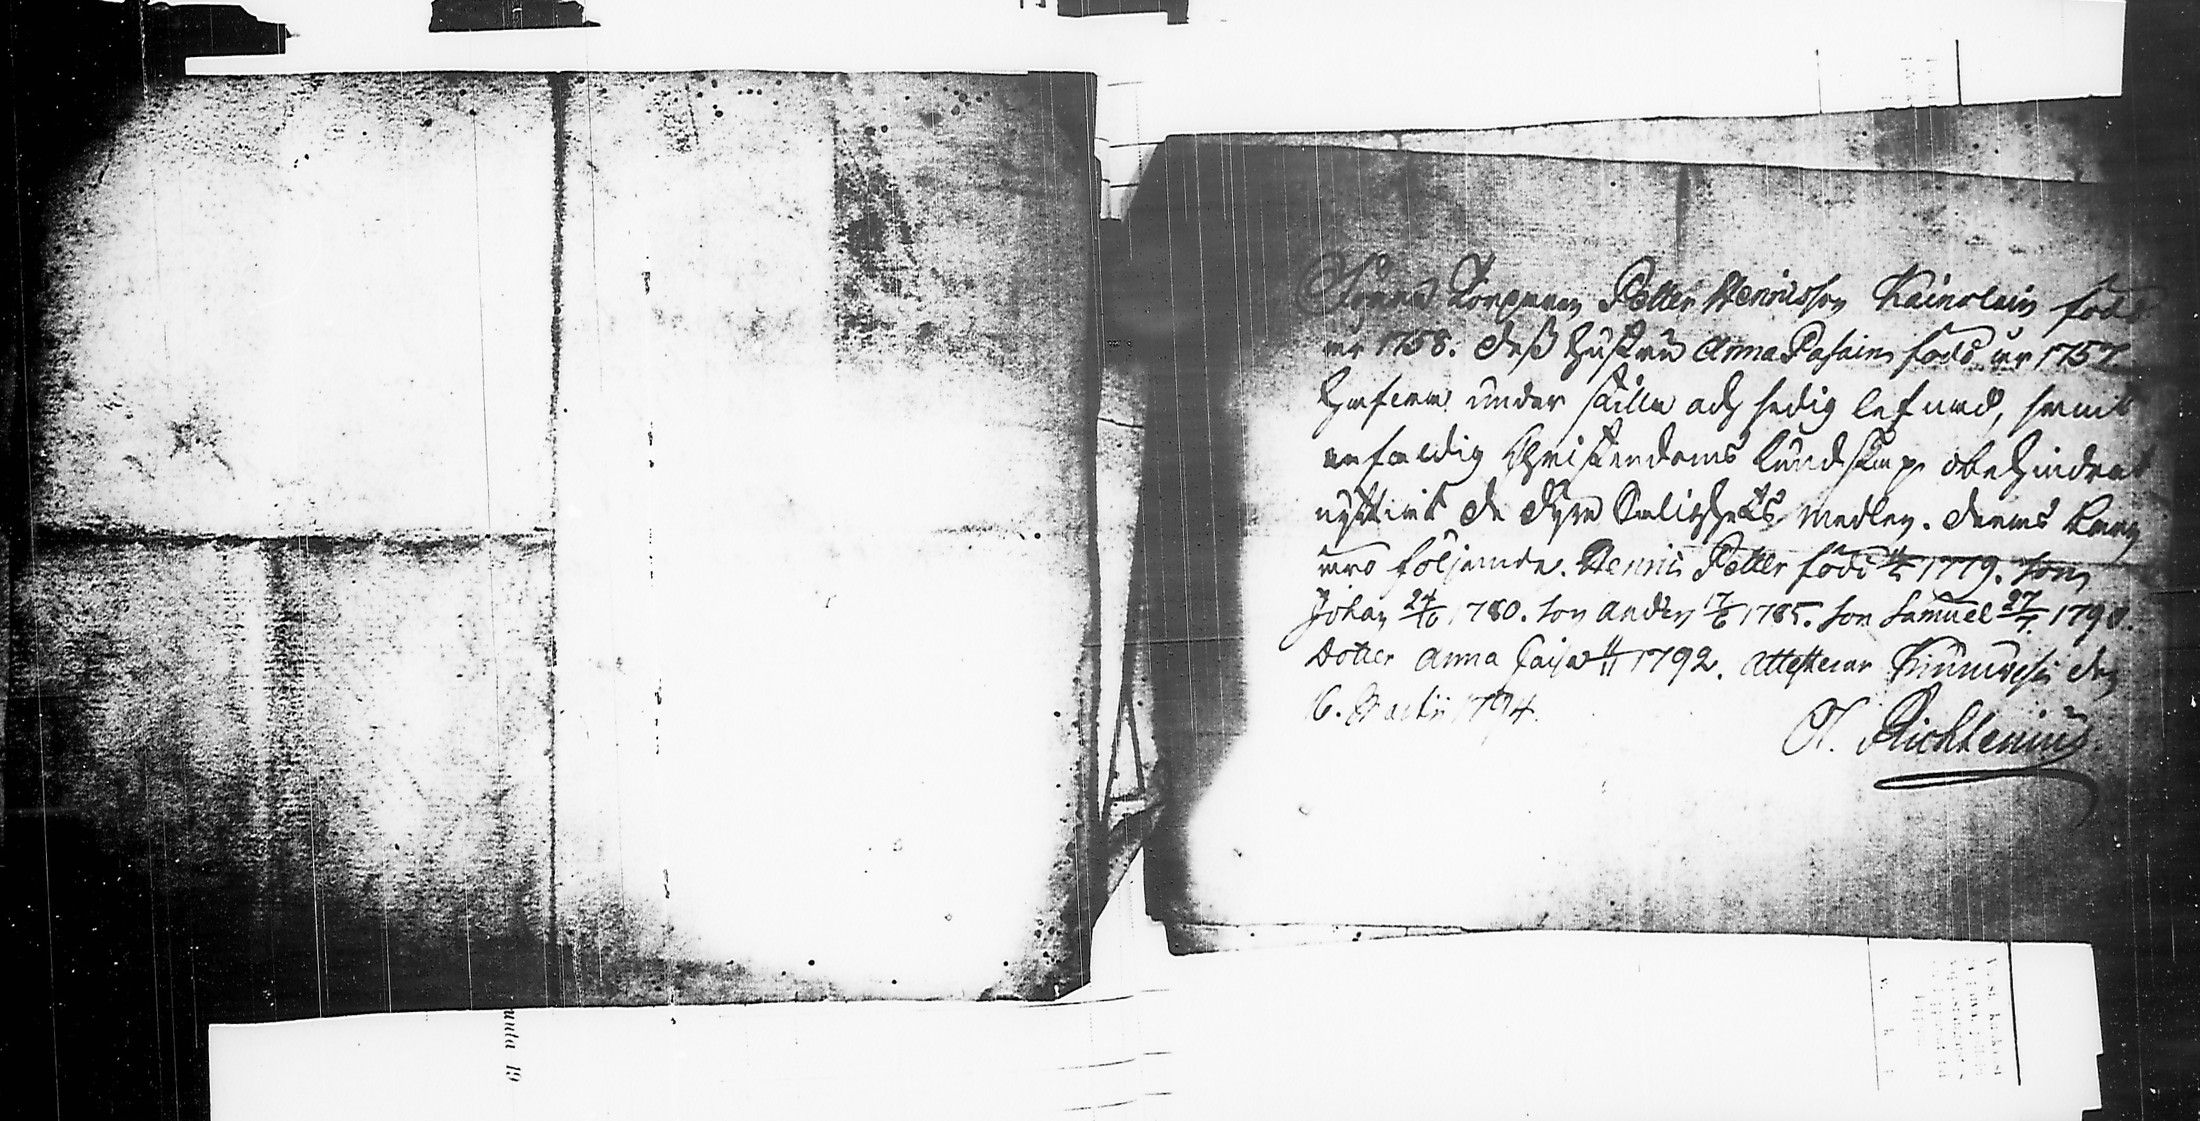 Torparen Petter Henricsson Kainolain född
år 1758. dess hustru Anna Pasain född år 1757
hafva under stilla och sedig lefnad, samt
enfaldig Christendoms kundskap obehindrat
nyttiat de dyra Salighets Medlen. deras barn
äro följande. Henric Petter född 1779. Son
Johan 24/6 1780. Son Anders 17/6 1785. Son Samuel 27/7 1790.
Dotter Anna Caisa 1792. Attesterar den
16. Martii 1794.